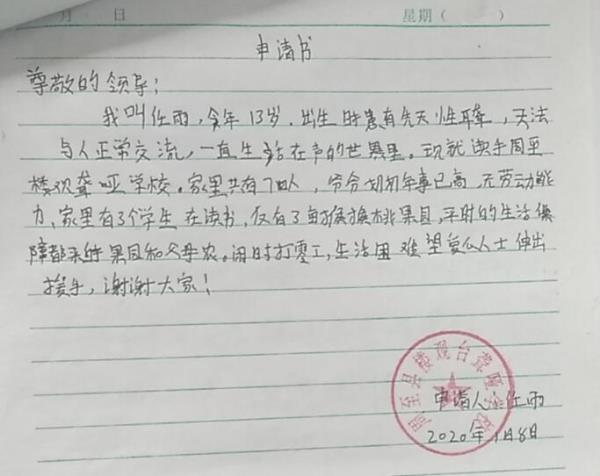 月 日 星期( )
申请书
尊敬的领导:
我叫任雨,今年13岁,出生时患有先天性耳聋,无法
与人正常交流,一直生活在无声的世界里。现就读于周至
楼观聋哑学校。家里共有7口人,爷爷奶奶年事已高,无劳动能
力,家里有3个学生在读书,仅有3亩猕猴桃果园,平时的生活保
障都来自果园和父母农闲时打零工,生活困难望爱心人士伸出
援手,谢谢大家!
周至县楼观台聋哑学校
申请人:任雨
2020年1月8日